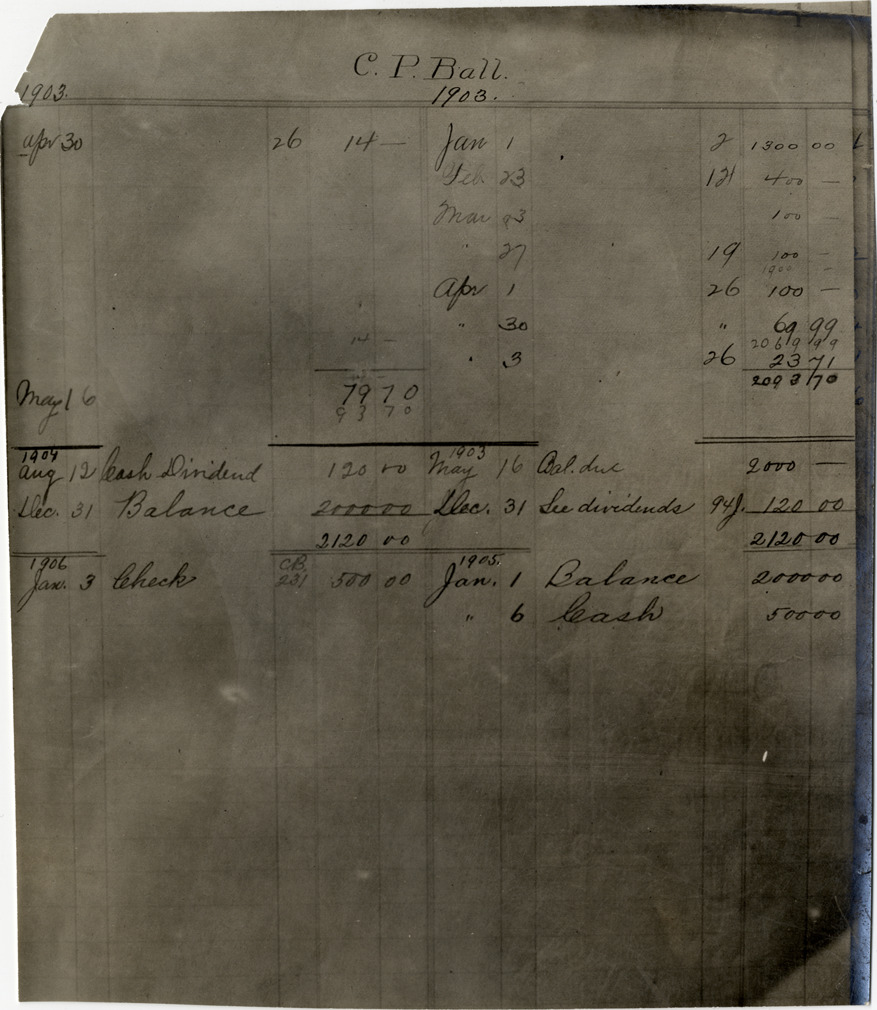 C. P. Ball.
1903. 1903.
Apr 30 26 14 — Jan 1 2 1300 00
Feb. 23 12 400 —
Mar 23 100 —
" 27 19 100 —
1900 —
Apr 1 26 100 —
" 30 " 69 99
14 — 2069 99
" 3 26 23 71
May 16 79 70 2093 70
93 70
1904 1903
Aug 12 Cash Dividend 120 00 May 16 Bal. due 2000 —
Dec. 31 Balance 2000 00 Dec. 31 See dividends 94J. 120 00
2120 00 2120 00
1906 C.B. 1905.
Jan. 3 Check 231 500 00 Jan. 1 Balance 2000 00
" 6 Cash 500 00